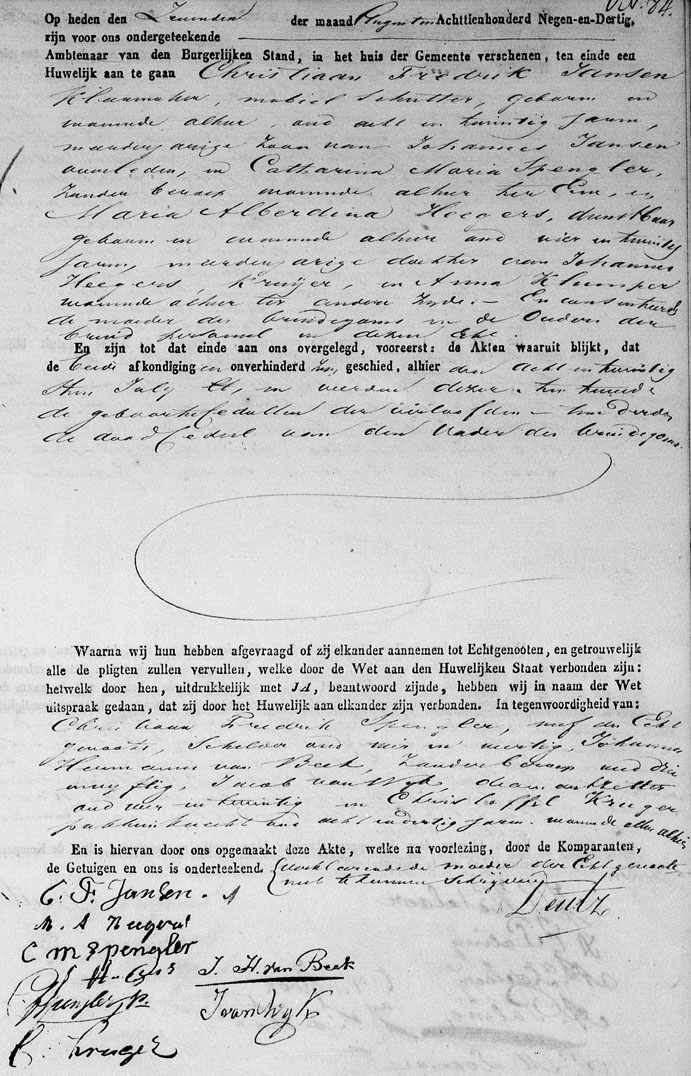 No. 84.
Op heden den Zevenden der maand Augustus Achttienhonderd Negen-en-Dertig,
zijn voor ons ondergeteekende
Ambtenaar van den Burgerlijken Stand, in het huis der Gemeente verschenen, ten einde een
Huwelijk aan te gaan Christiaan Fredrik Jansen
mobiel Schutter, geboren en
woonende alhier, oud acht en twintig Jaren,
meerderjarige Zoon van Johannes Jansen
overleden, en Catharina Maria Spengler,
Zonder beroep woonende alhier ter Eene, en
Maria Alberdina Heegers, dienstbaar
geboren en woonende alhier oud vier en twintig
Jaren, meerderjarige dochter van Johannes
Heegers, Kruijer, en Anna Klumper
woonende alhier ter andere Zyde. — En consenteerde
de moeder des bruidegoms en de Ouders der
bruid personeel in dezen Echt.
En zijn tot dat einde aan ons overgelegd, vooreerst: de Akten waaruit blijkt, dat
de beide afkondigingen onverhinderd zijn geschied, alhier den acht en twintig
sten July ll, en vierden dezer. ten tweede
de geboorte cedullen der verloofden — ten derde
de dood cedul van den Vader des bruidegoms.
Waarna wij hun hebben afgevraagd of zij elkander aannemen tot Echtgenooten, en getrouwelijk
alle de pligten zullen vervullen, welke door de Wet aan den Huwelijken Staat verbonden zijn:
hetwelk door hen, uitdrukkelijk met JA, beantwoord zijnde, hebben wij in naam der Wet
uitspraak gedaan, dat zij door het Huwelijk aan elkander zijn verbonden. In tegenwoordigheid van:
Christiaan Fredrik Spengler, neef des Echt
genoots, oud vier en veertig, Johannes
Hermanus van Beek, Zonder beroep oud drie
en vyftig, Jacob van Wyk,
oud vier en twintig en Christoffel Kruger
pakhuisknecht oud acht en dertig Jaren. woonende allen alhier
En is hiervan door ons opgemaakt deze Akte, welke na voorlezing, door de Komparanten,
de Getuigen en ons is onderteekend. (verklarende de moeder der Echtgenoote
niet te kunnen Schrijven)
C. F. Jansen.
Deutz.
M. A Heegers
C M Spengler
J. H. van Beek
J van Wyk
C. Kruger